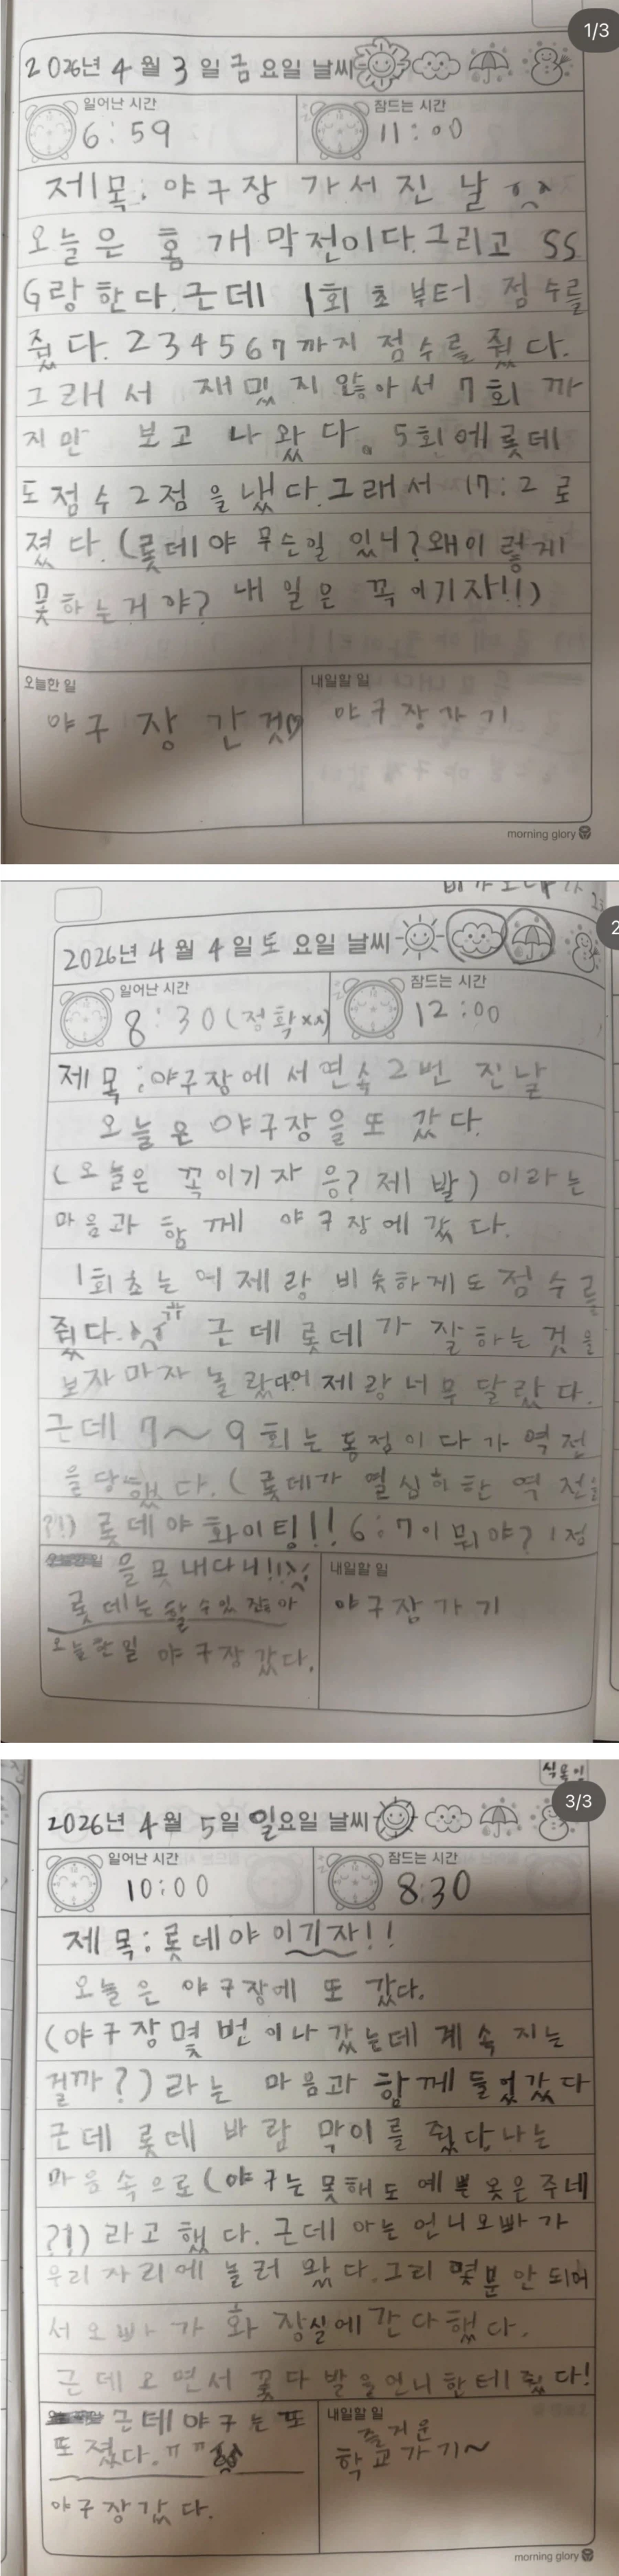 1/3
2026년 4월 3일 금요일 날씨
일어난 시간
6:59
잠드는 시간
11:00
제목: 야구장 가서 진 날
오늘은 홈 개막전이다.그리고 SS
G랑 한다.근데 1회초부터 점수를
줬다. 234567까지 점수를 줬다.
그래서 재밌지 않아서 7회 까
지만 보고 나왔다. 5회에 롯데
도 점수 2점을 냈다.그래서 17:2로
졌다.(롯데야 무슨일 있니?왜이렇게
못하는거야? 내일은 꼭 이기자!!)
오늘한 일
야구장 간것♡
내일할 일
야구장가기
morning glory
2
2026년 4월 4일 토요일 날씨
일어난 시간
8:30(정확xx)
잠드는 시간
12:00
제목:야구장에서 연속 2번 진날
오늘은 야구장을 또 갔다.
(오늘은 꼭이기자 응?제발)이라는
마음과 함께 야구장에 갔다.
1회초는 어제랑 비슷하게도 점수를
줬다. 근데 롯데가 잘하는 것을
보자마자 놀랐다어제랑 너무 달랐다.
근데 7~9회는 동점이다가 역전
을 당했다.(롯데가 열심히 한 역전을
?!) 롯데야 화이팅!!6:7이 뭐야?1점
을 못내다니!!
롯데는 할 수 있잖아
오늘한일 야구장 갔다.
내일할 일
야구장가기
식목일
3/3
2026년 4월 5일 일요일 날씨
일어난 시간
10:00
잠드는 시간
8:30
제목:롯데야 이기자!!
오늘은 야구장에 또 갔다.
(야구장 몇번이나 갔는데 계속 지는
걸까?)라는 마음과 함께 들었갔다
근데 롯데 바람막이를 줬다.나는
마음속으로(야구는 못해도 예쁜 옷은 주네
?!)라고 했다. 근데 아는 언니오빠가
우리자리에 놀러 왔다.그리 몇분안되어
서 오빠가 화장실에 간다했다.
근데 오면서 꽃다발을 언니한테 줬다!
근데 야구는 또
또 졌다.ㅠㅠ
야구장갔다.
내일할 일
즐거운
학교가기~
morning glory